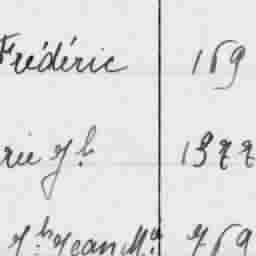 Frédéric 169
rie Jh 1377
Jh Jean Ma 769